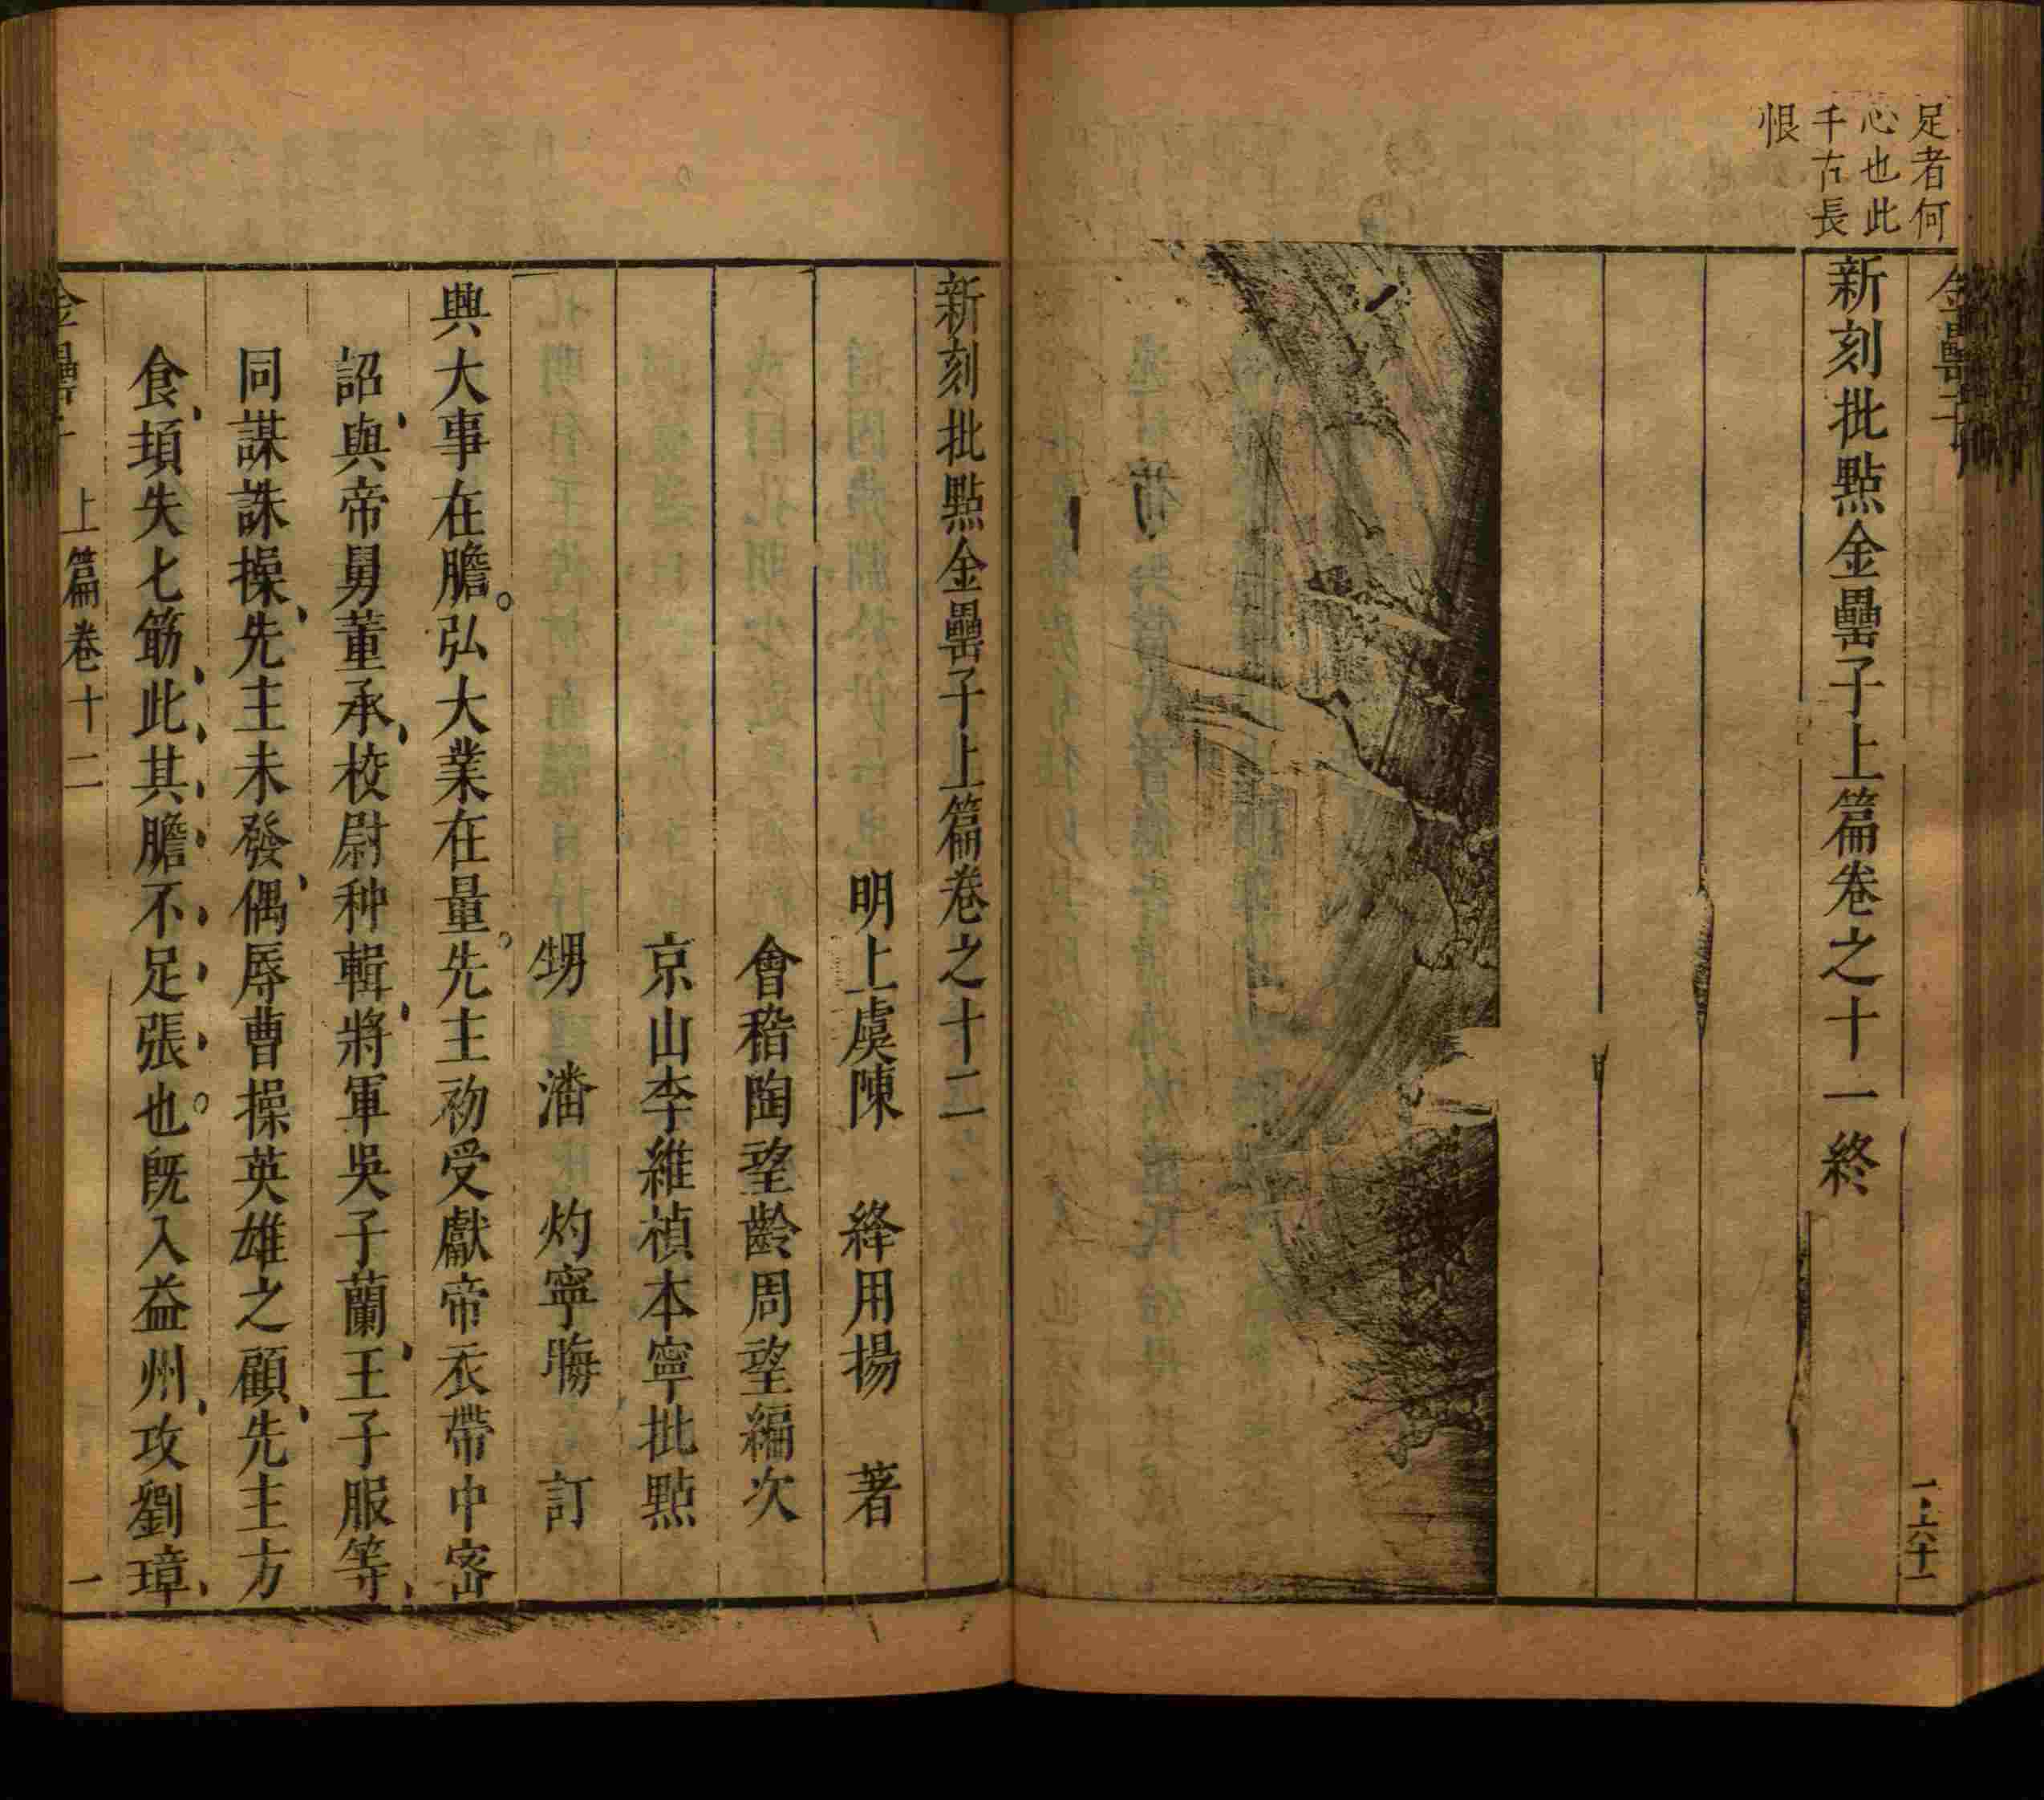 足者何
心也此
千古長
恨
金罍子
新刻批點金罍子上篇卷之十一終
六十一
新刻批點金罍子上篇卷之十二
明上虞陳　絳用揚　著
會稽陶望齡周望編次
京山李維禎本寧批點
甥　潘　灼寧晦　訂
興大事在膽。弘大業在量。先主初受獻帝衣帶中密
詔、與帝舅董承、校尉种輯、將軍吳子蘭、王子服等、
同謀誅操、先主未發、偶辱曹操英雄之顧、先主方
食、頃失匕筯、此、其、膽、不、足、張、也。既入益州、攻劉璋、
金罍子　上篇卷十二　一